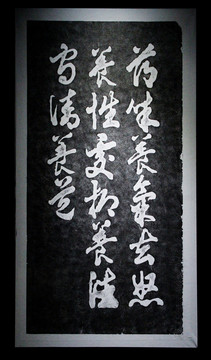 薄味養氣去怒
養性處抑養德
守清養道